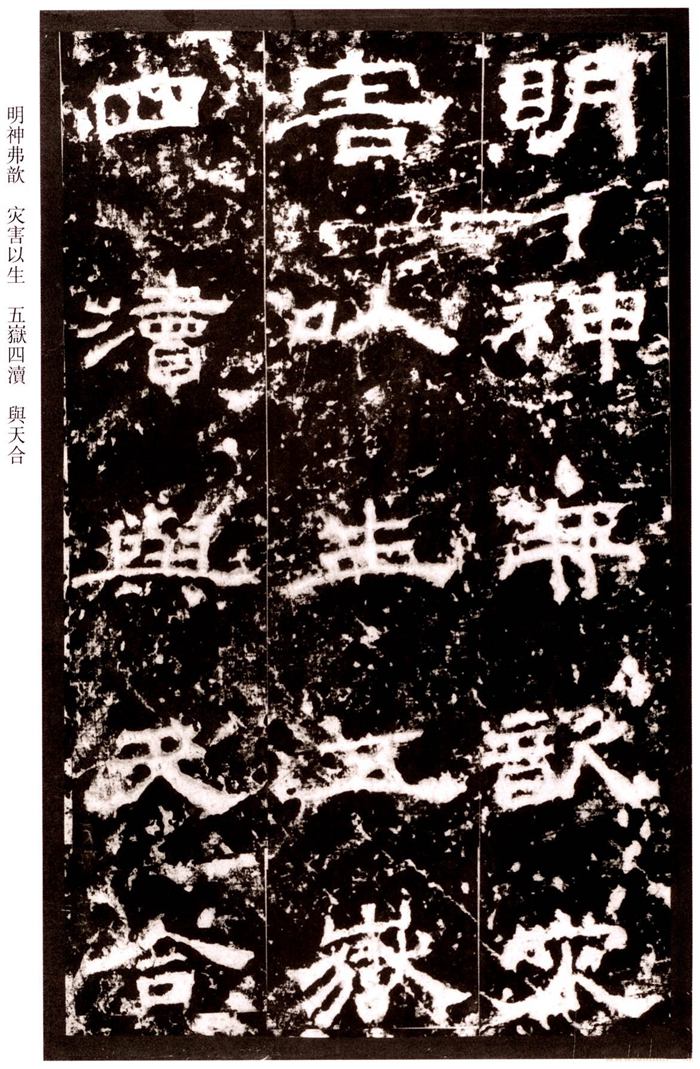 明神弗歆灾
害以生五嶽
四瀆與天合
明神弗歆 灾害以生 五嶽四瀆 與天合